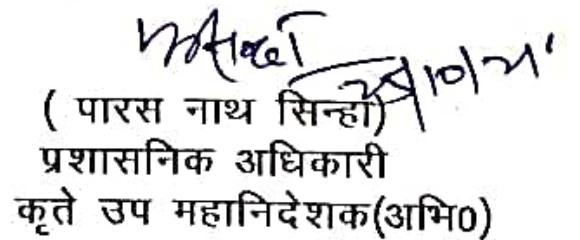 ( पारस नाथ सिन्हा)
प्रशासनिक अधिकारी
कृते उप महानिदेशक(अभि0)